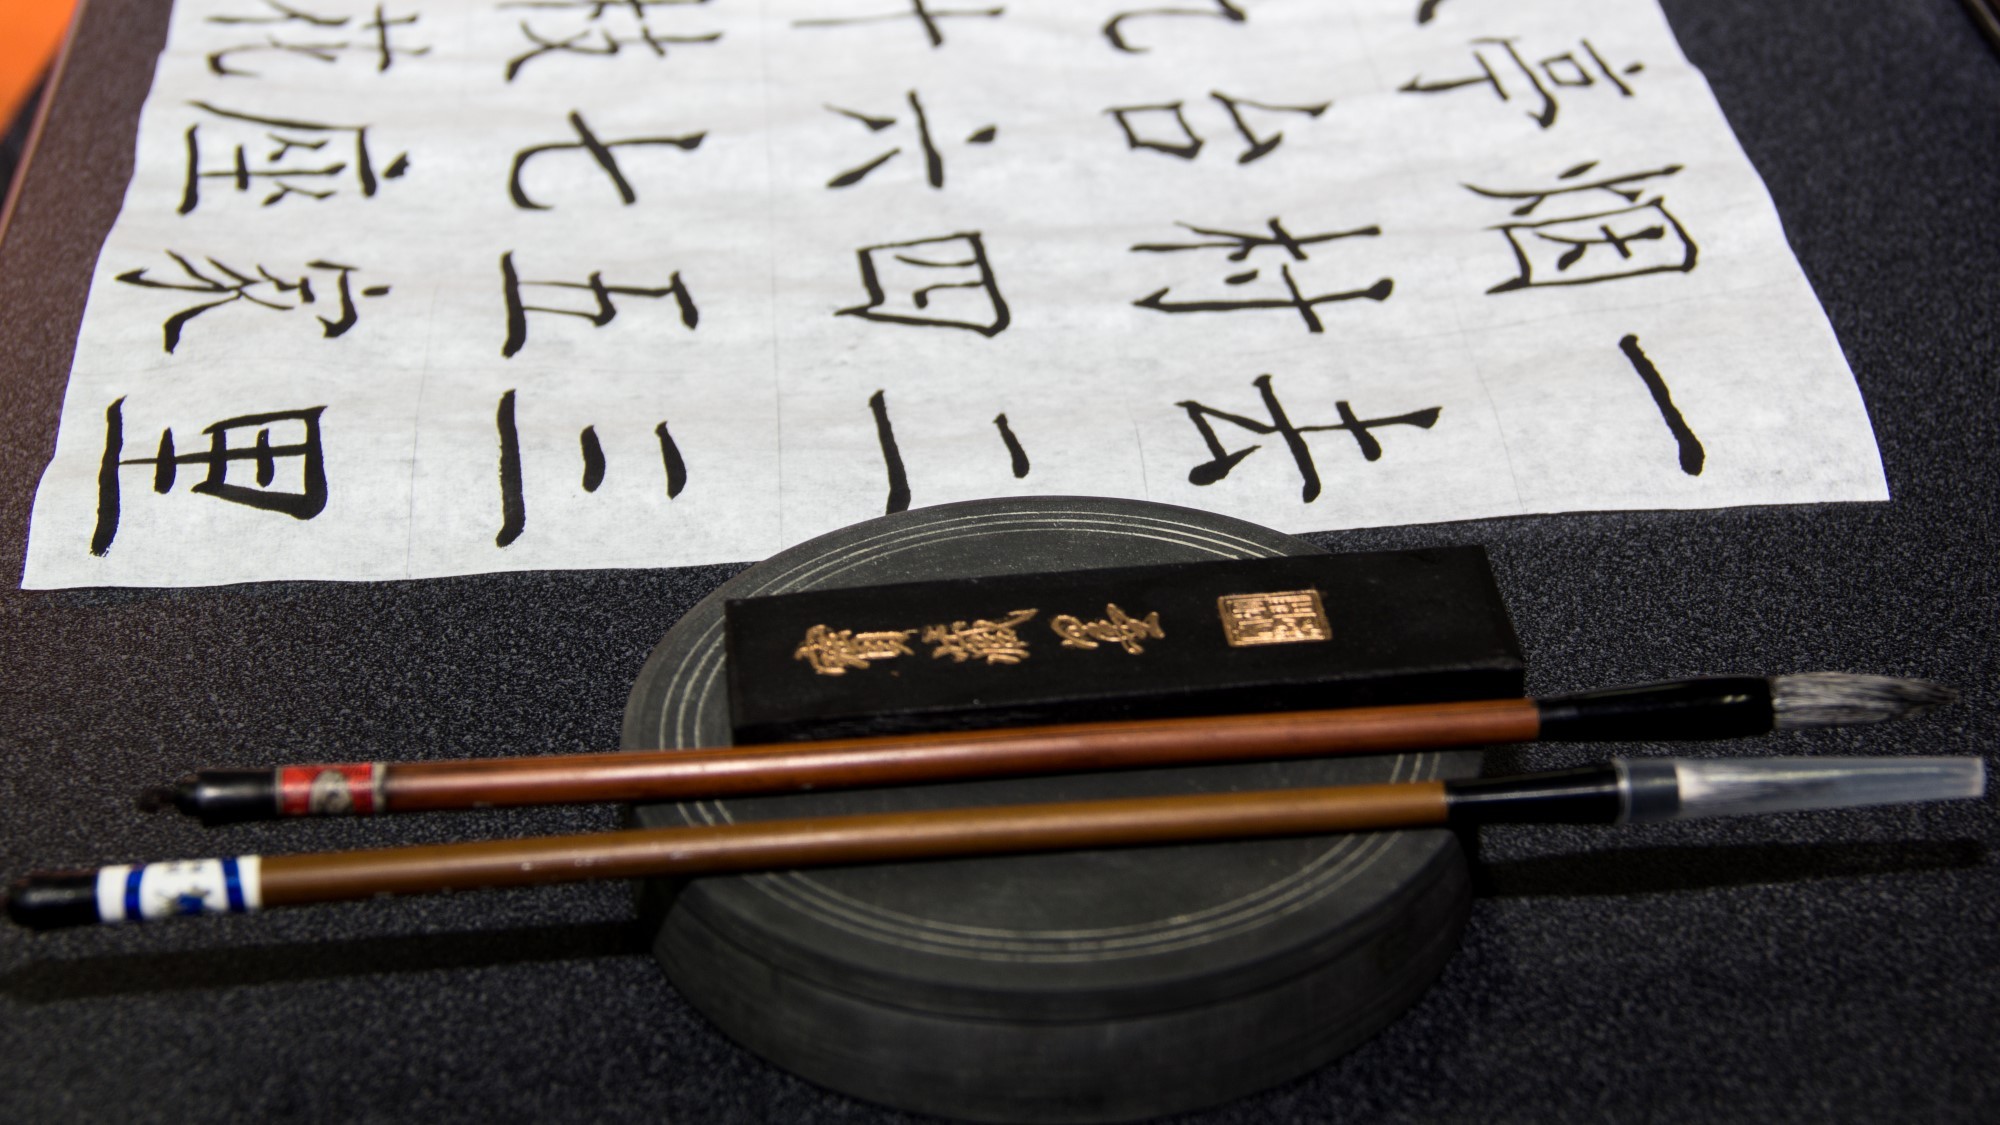 一去二三里
烟村四五家
亭台六七座
九十枝花